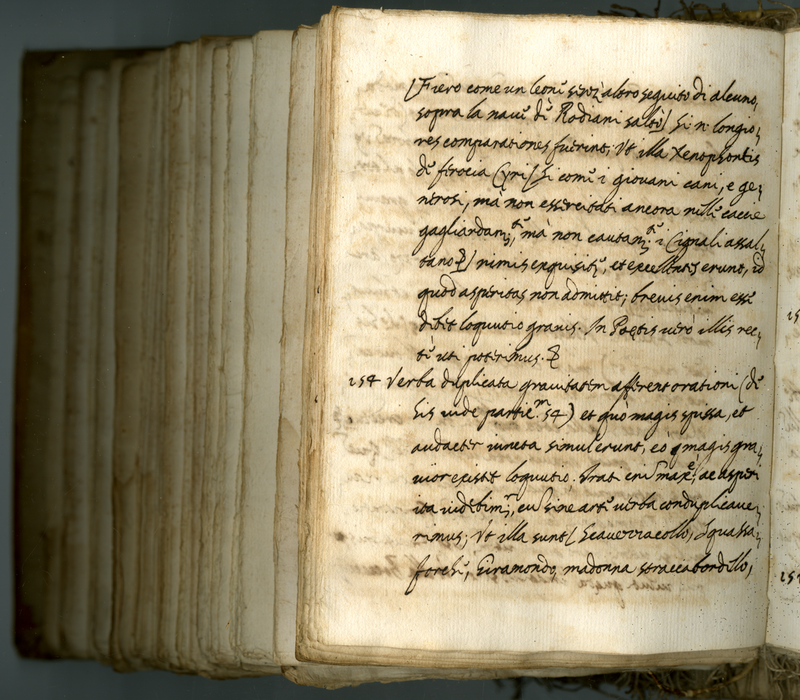 (Fiero come un leone senz'altro seguito di alcuno,
sopra la nave de Rodiani saltò) si n. longio,
res comparationes fuerint; Vt illa Xenophontis
de ferocia Cyri (si come i giovani cani, e ge,
nerosi, mà non essercitati ancora nelle caccie
gagliardam.te, mà non cautam.te i Cignali assal,
tano) nimis exquisite, et excellentes erunt, id
quod asperitas non admittit; brevis enim esse
debet loquutio gravis. In Poetis uerò illis rec,
te uti poterimus.
154 Verba duplicata grauitatem afferent orationi (de
his uide partic.m 54) et quo magis spissa, et
audacter iuncta simul erunt, eò magis gra,
uior existet loquutio. Irati eni max.e, ac asperi
ita uidebim.r, cu sine arte uerba conduplicaue,
rimus; Vt illa sunt (Scavezzacollo, Squassa,
forche, Giramondo, madonna straccabordello,